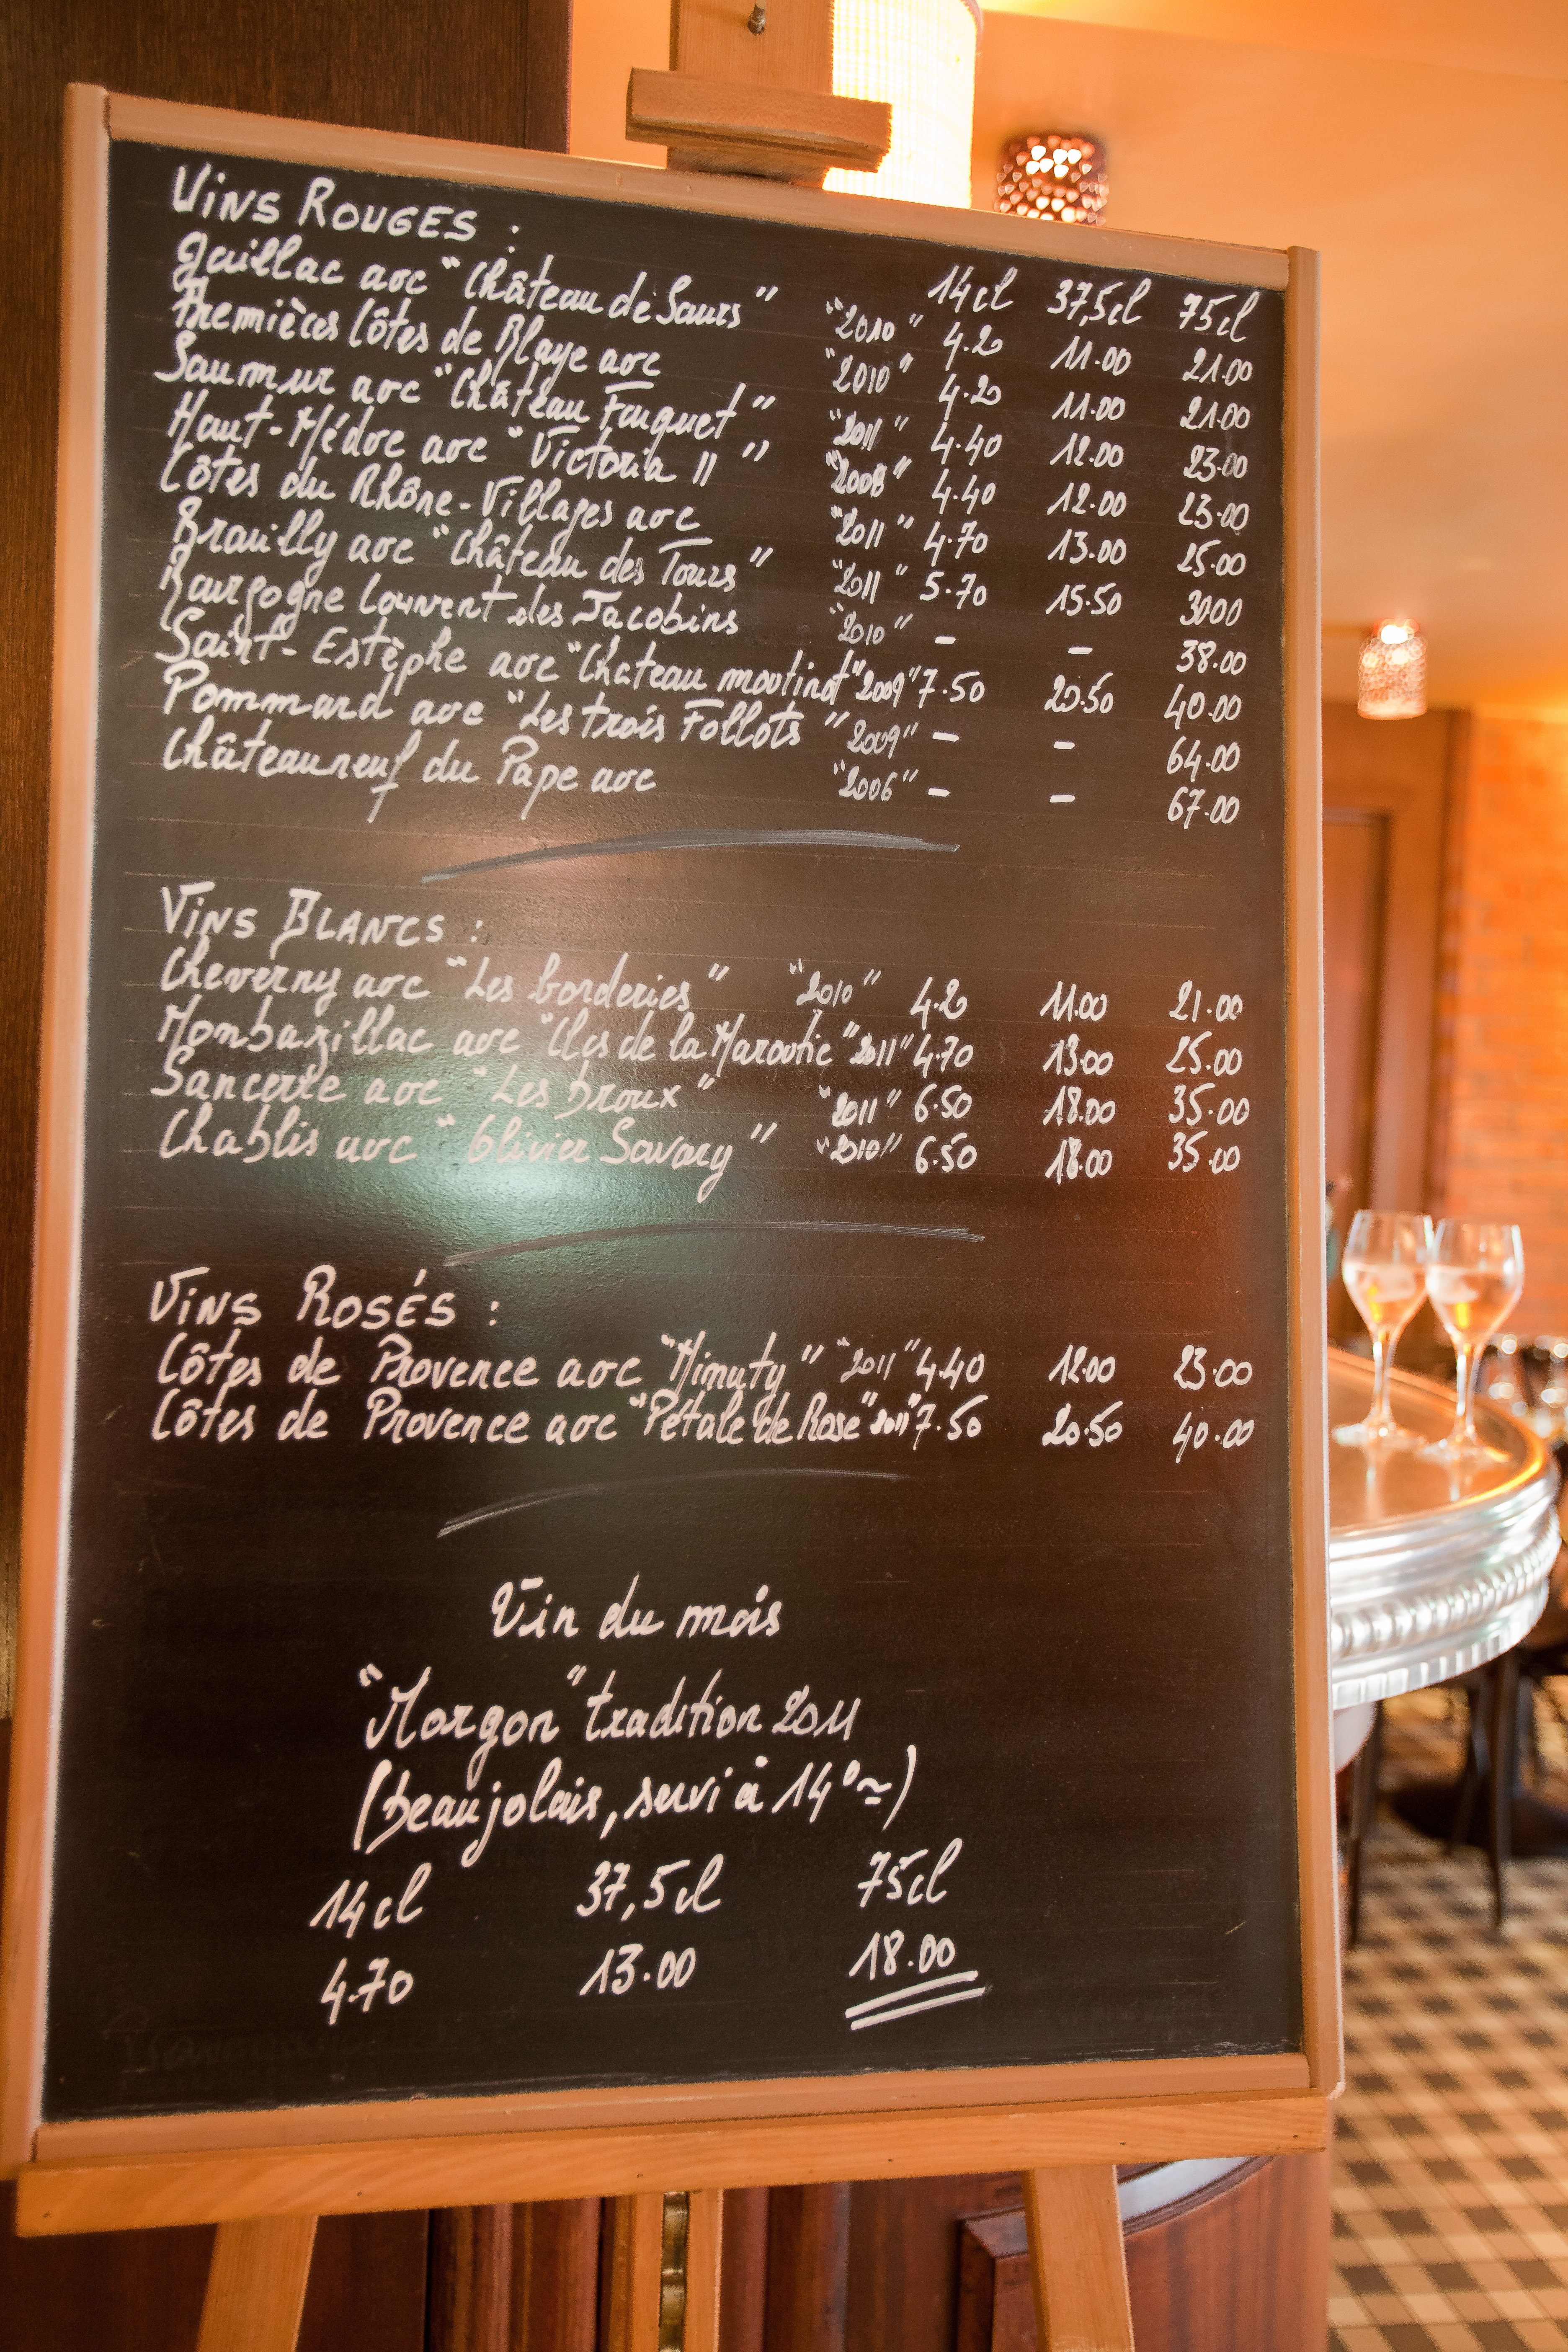 VINS ROUGES :
14cl 37,5cl 75cl
Gaillac aoc "Château de Saurs" "2010" 4.20 11.00 21.00
Premières Côtes de Blaye aoc "2010" 4.20 11.00 21.00
Saumur aoc "Château Fouquet" "2011" 4.40 12.00 23.00
Haut-Médoc aoc "Victoria II" "2008" 4.40 12.00 23.00
Côtes du Rhône-Villages aoc "2011" 4.70 13.00 25.00
Brouilly aoc "Château des Tours" "2011" 5.70 15.50 3000
Bourgogne Couvent des Jacobins "2010" - - 38.00
Saint-Estèphe aoc "Chateau moutinot" "2009" 7.50 20.50 40.00
Pommard aoc "Les trois Follots" "2009" - - 64.00
Châteauneuf du Pape aoc "2006" - - 67.00
VINS BLANCS :
Cheverny aoc "Les borderies" "2010" 4.20 11.00 21.00
Monbazillac aoc "Clos de la Maroutie" "2011" 4.70 13.00 25.00
Sancerre aoc "Les broux" "2011" 6.50 18.00 35.00
Chablis aoc "Olivier Savary" "2010" 6.50 18.00 35.00
VINS ROSÉS :
Côtes de Provence aoc "Minuty" "2011" 4.40 12.00 23.00
Côtes de Provence aoc "Pétale de Rose" "2011" 7.50 20.50 40.00
Vin du mois
"Morgon" tradition 2011
(beaujolais, servi à 14°~)
14cl 37,5cl 75cl
4.70 13.00 18.00